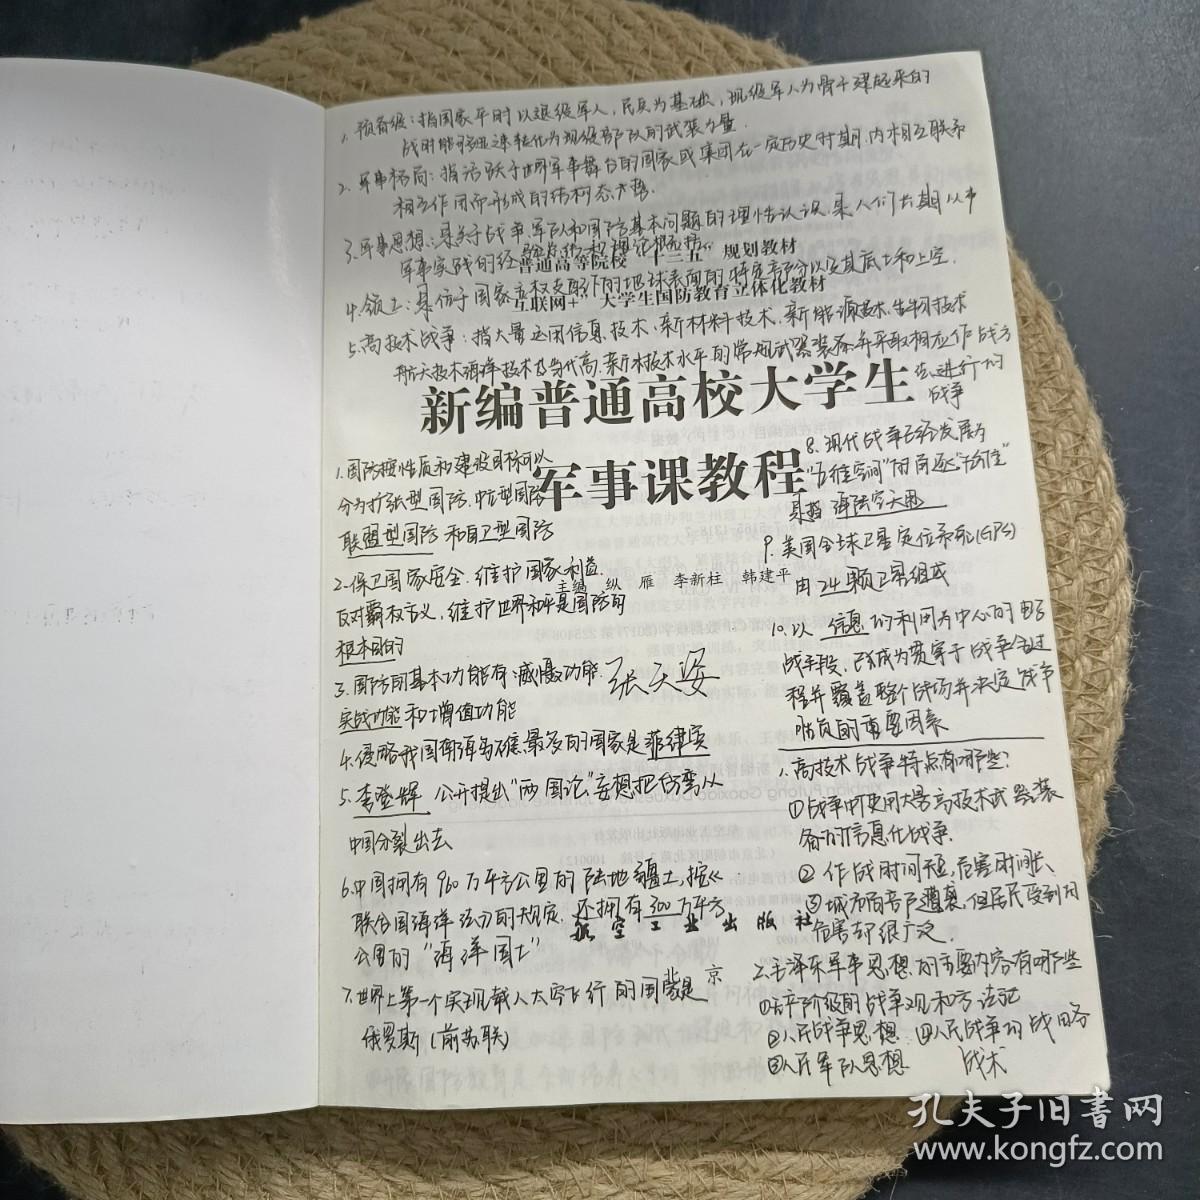 1. 预备役：指国家平时以退役军人，民兵为基础，现役军人为骨干建起来的
战时能够迅速转化为现役部队的武装力量.
2. 军事格局：指活跃于世界军事舞台的国家或集团在一定历史时期内相互联系
相互作用而形成的结构态势.
3. 军事思想：是关于战争、军队和国防基本问题的理性认识，是人们长期从事
军事实践的经验总结和理论概括.
普通高等院校“十三五”规划教材
4. 领土：是位于国家主权支配下的地球表面的特定部分以及其底土和上空.
“互联网+”大学生国防教育立体化教材
5. 高技术战争：指大量运用信息技术、新材料技术、新能源技术、生物技术
航天技术海洋技术及当代高、新技术水平的常规武器装备并采取相应作战方
法进行的
战争
新编普通高校大学生
军事课教程
1. 国防按性质和建设目标可以
分为扩张型国防、中立型国防
联盟型国防和自卫型国防
2. 保卫国家安全、维护国家利益，
反对霸权主义，维护世界和平是国防的
根本目的
3. 国防的基本功能有：威慑功能、
实战功能和增值功能
4. 侵略我国南海岛礁最多的国家是菲律宾
5. 李登辉 公开提出“两国论”妄想把台湾从
中国分裂出去
6. 中国拥有960万平方公里的陆地疆土，按《
联合国海洋法公约》的规定，还拥有300万平方
公里的“海洋国土”
7. 世界上第一个实现载人太空飞行的国家是
俄罗斯（前苏联）
主编 纵 雁 李新柱 韩建平
张天姿
航空工业出版社
北 京
8. 现代战争已经发展为
“五维空间”所角逐“五维”
是指 海陆空天电
9. 美国全球卫星定位系统（GPS）
由24颗卫星组成
10. 以 信息的利用为中心的电子
战手段，已成为贯穿于战争全过
程并覆盖整个战场并决定战争
胜负的重要因素
1. 高技术战争特点有哪些？
①战争中使用大量高技术武器装
备的信息化战争.
②作战时间短，危害时间长、
③城市居民遭袭，但居民受到的
危害却很广泛.
2. 毛泽东军事思想的主要内容有哪些
①无产阶级的战争观和方法论
②人民战争思想 ④人民战争的战略
③人民军队思想 战术
孔夫子旧书网
www.kongfz.com